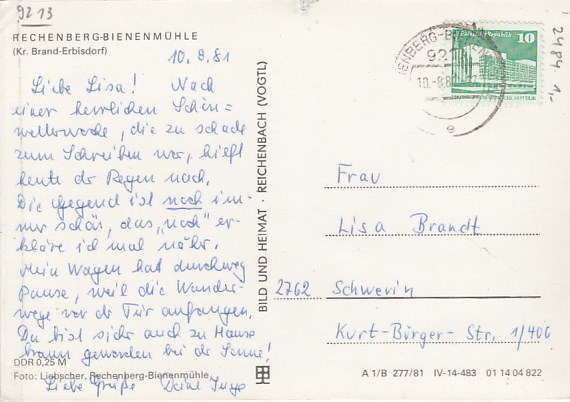 9213
RECHENBERG-BIENENMÜHLE
(Kr. Brand-Erbisdorf)
10.8.81
Liebe Lisa! Nach
einer herrlichen Schön=
wetterwoche, die zu schade
zum Schreiben war, hilft
heute dr Regen nach.
Die Gegend ist noch im-
mer schön, das „noch" er-
kläre ich mal nähr.
Mein Wagen hat durchweg
Pause, weil die Wander-
wege vor dr Tür anfangen.
Du bist sichr auch zu Hause
braun geworden bei dr Sonne!
Liebe Grüße Deine Inge
DDR 0,25 M
Foto: Liebscher, Rechenberg-Bienenmühle
BILD UND HEIMAT · REICHENBACH (VOGTL)
10
2484 1,-
Frau
Lisa Brandt
2762 Schwerin
Kurt-Bürger-Str. 1/406
A 1/B 277/81 IV-14-483 01 14 04 822